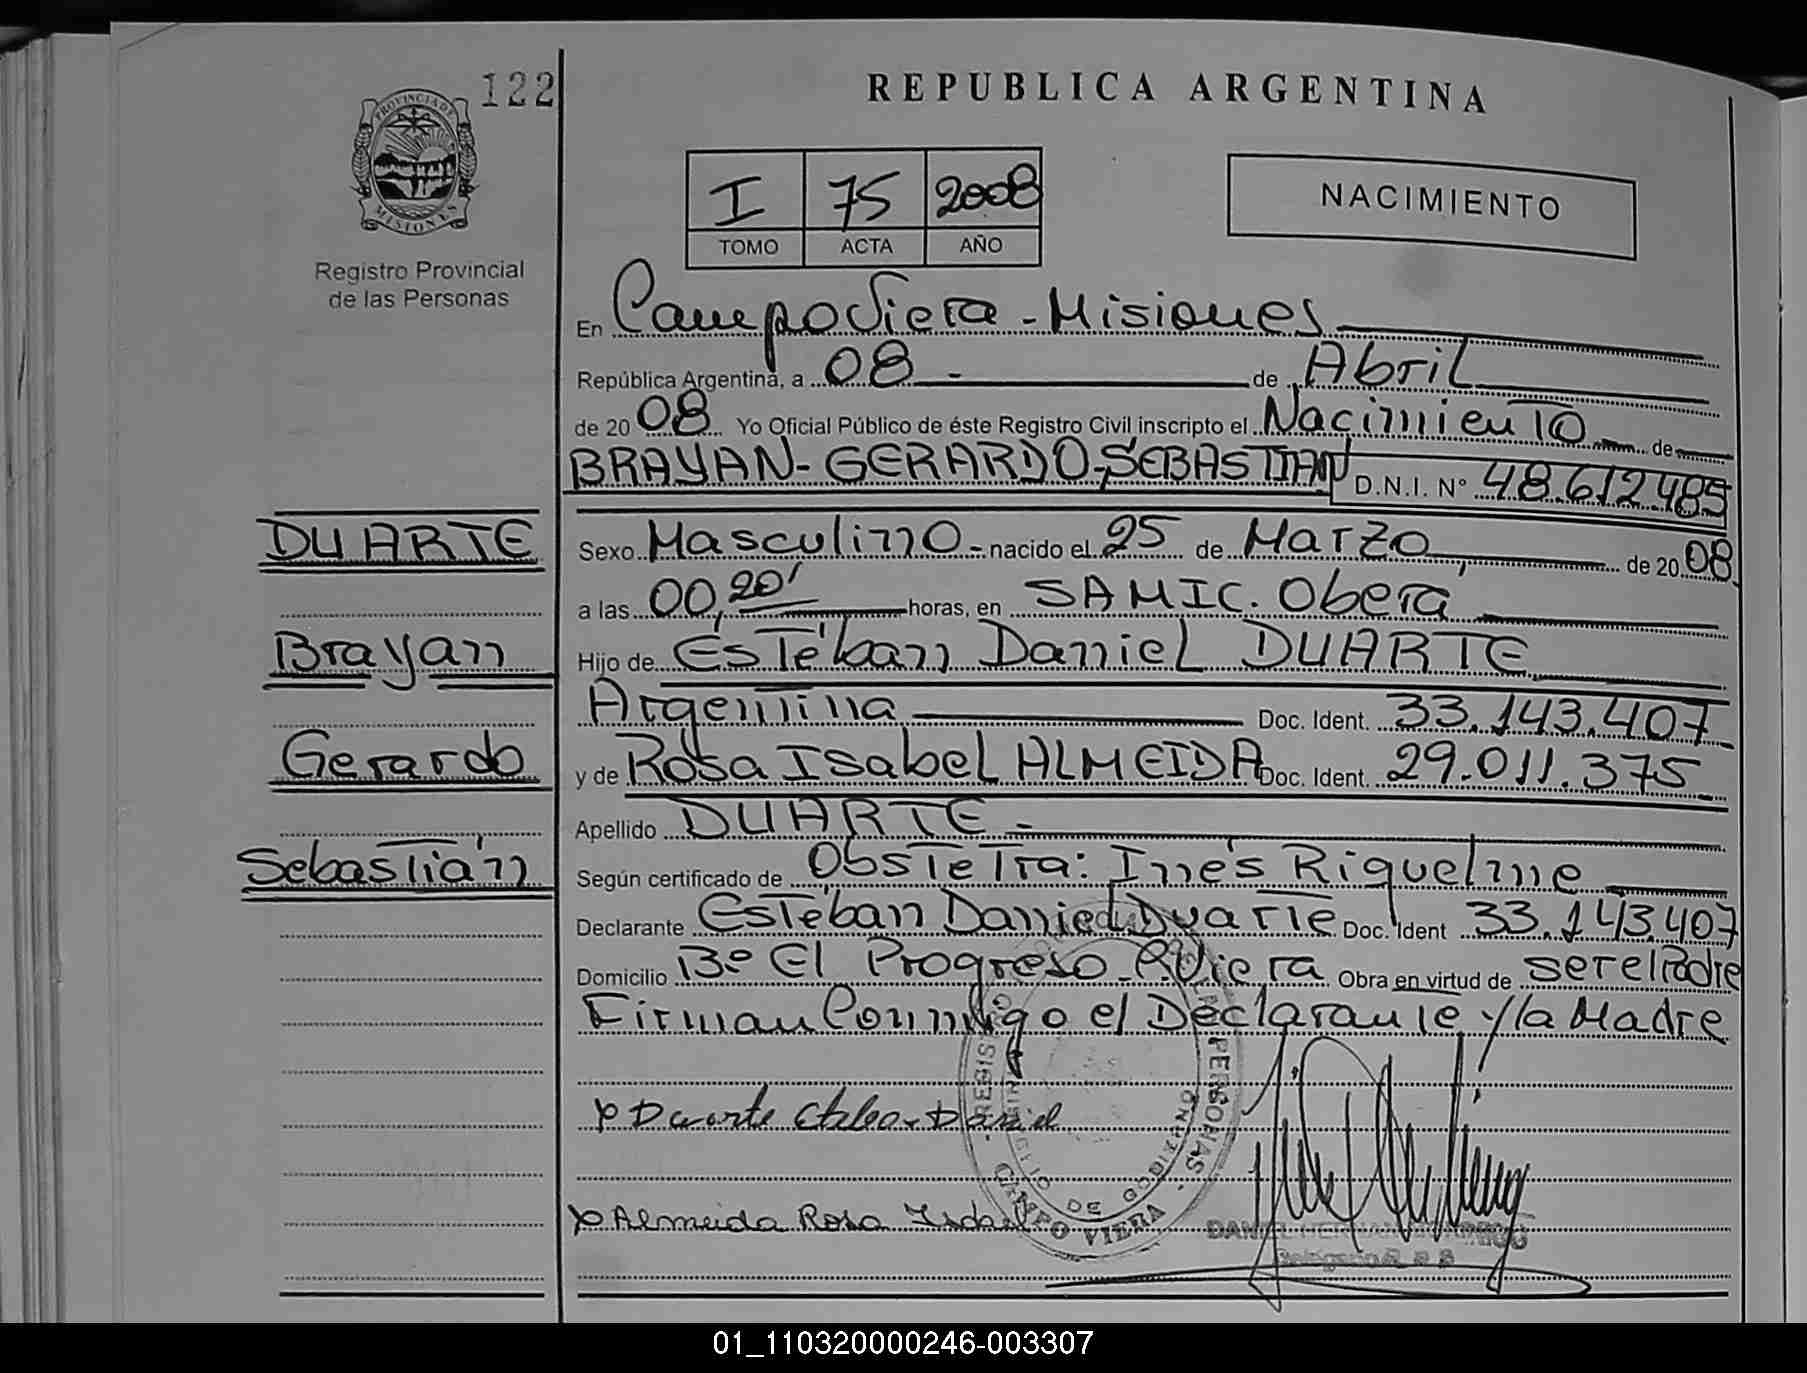 122
PROVINCIA DE
MISIONES
Registro Provincial
de las Personas
REPUBLICA ARGENTINA
I 75 2008
TOMO ACTA AÑO
NACIMIENTO
En Campo Viera - Misiones
República Argentina, a 08 - de Abril
de 20 08 Yo Oficial Público de éste Registro Civil inscripto el Nacimiento de
BRAYAN-GERARDO-SEBASTIAN D.N.I. N° 48.612.485
DUARTE
Sexo Masculino - nacido el 25 de Marzo de 20 08
a las 00,20' horas, en SAMIC. Oberá
Brayan
Hijo de Estéban Daniel DUARTE
Argentina Doc. Ident. 33.143.407
Gerardo
y de Rosa Isabel ALMEIDA Doc. Ident. 29.011.375
Apellido DUARTE -
Sebastián
Según certificado de Obstetra: Inés Riquelme
Declarante Estéban Daniel Duarte Doc. Ident 33.143.407
Domicilio B.º El Progreso - C. Viera Obra en virtud de ser el Padre
Firman Conmigo el Declarante y la Madre
x Duarte Esteban Daniel
x Almeida Rosa Isabel
PERSONAS
CAMPO VIERA
01_110320000246-003307